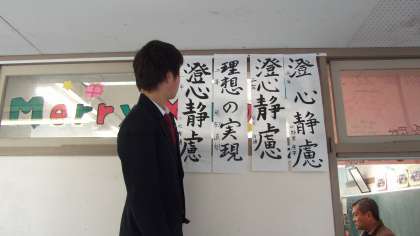 Merry
澄心静慮
理想の実現
澄心静慮
澄心静慮